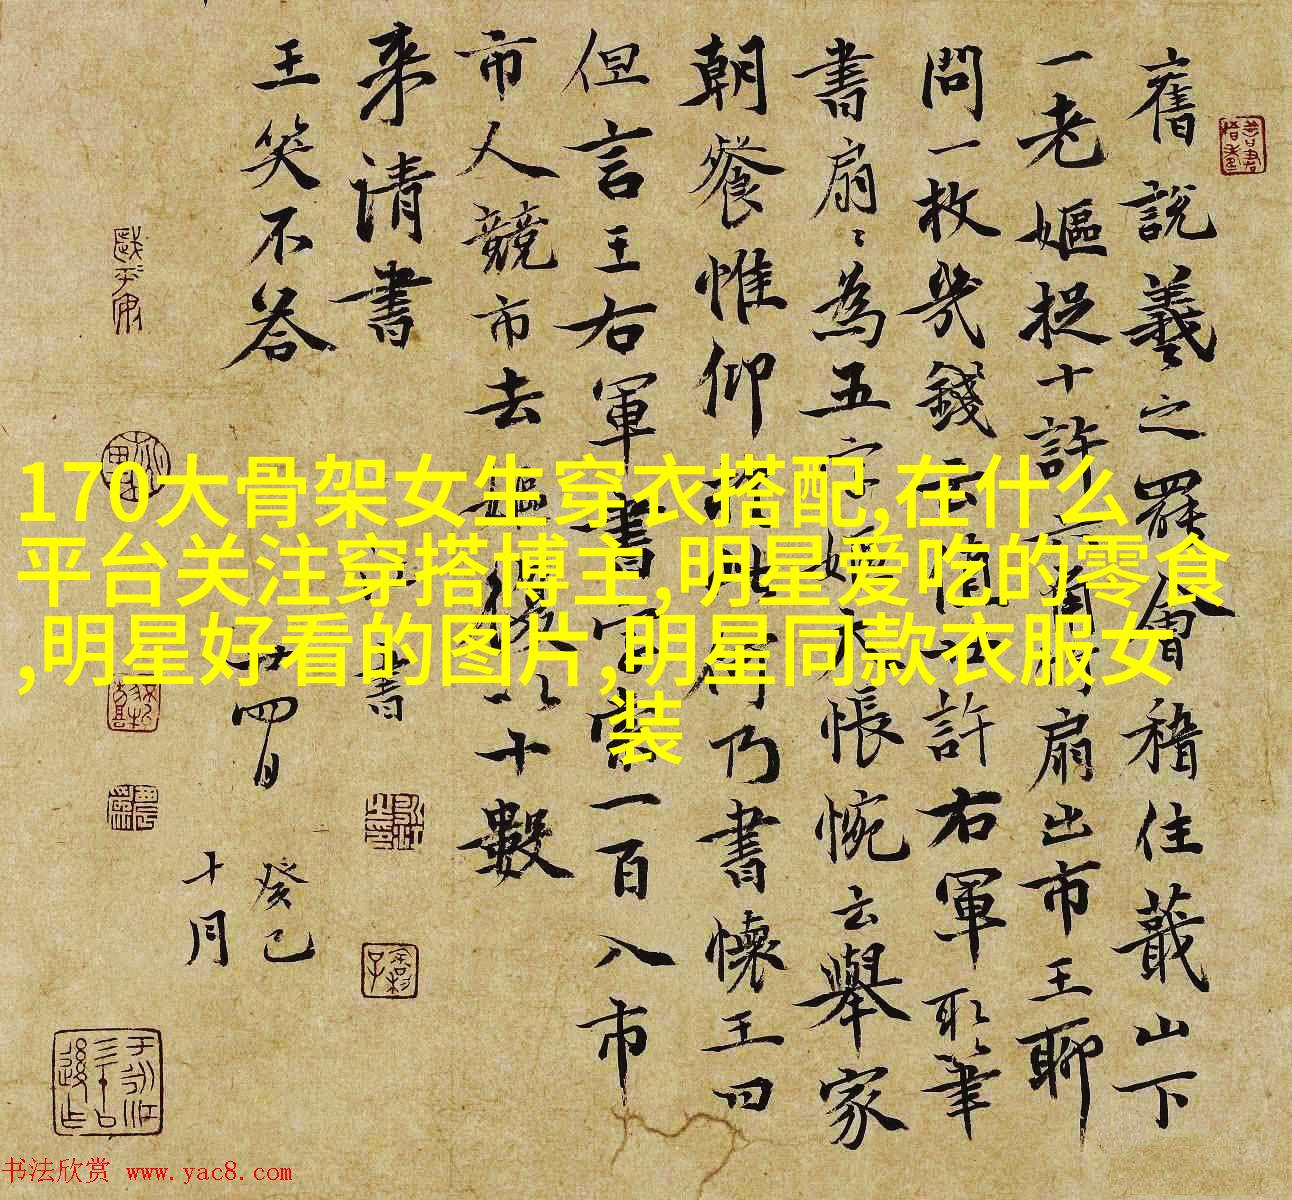 舊說羲之罷會稽住蕺山下
一老嫗捉十許六角扇出市王聊
問一枚幾錢云直廿許右軍取筆
書扇扇為五字嫗大悵惋云舉家
朝餐惟仰於此何乃書壞王曰
但言王右軍書字索一百入市
市人競市去嫗復以十數
来請書
王笑不答
書
廿四日
癸巳
十月
170大骨架女生穿衣搭配,在什么
平台关注穿搭博主,明星爱吃的零食
,明星好看的图片,明星同款衣服女
装
书法欣赏 www.yac8.com